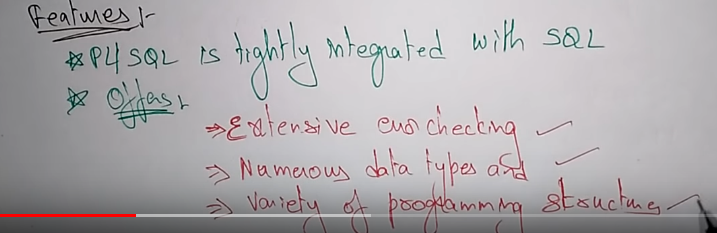 Features:-
* Pl/SQL is tightly integrated with SQL
* Offers:
⇒ Extensive error checking
⇒ Numerous data types and
⇒ Variety of programming structures